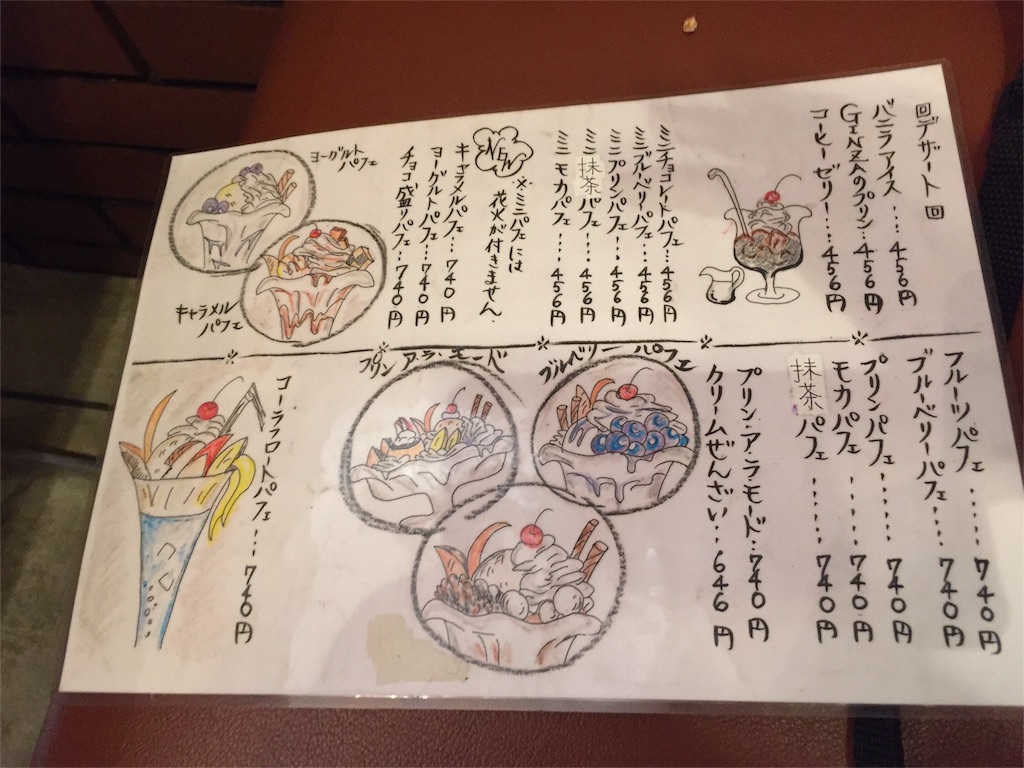 回デザート回
バニラアイス‥‥456円
GINZAのプリン‥456円
コーヒーゼリー‥‥456円
ミニチョコレートパフェ‥456円
ミニブルーベリーパフェ‥456円
ミニプリンパフェ‥‥456円
ミニ抹茶パフェ‥‥456円
ミニモカパフェ‥‥456円
※ミニパフェには
花火が付きません.
NEW
キャラメルパフェ‥‥740円
ヨーグルトパフェ‥‥740円
チョコ盛りパフェ‥‥740円
ヨーグルト
パフェ
キャラメル
パフェ
フルーツパフェ‥‥‥740円
ブルーベリーパフェ‥‥740円
プリンパフェ‥‥‥740円
モカパフェ‥‥‥740円
抹茶パフェ‥‥‥740円
プリン・ア・ラ・モード‥740円
クリームぜんざい‥‥646円
ブルベリーパフェ
プリンア・ラ・モード
コーラフロートパフェ‥‥740円